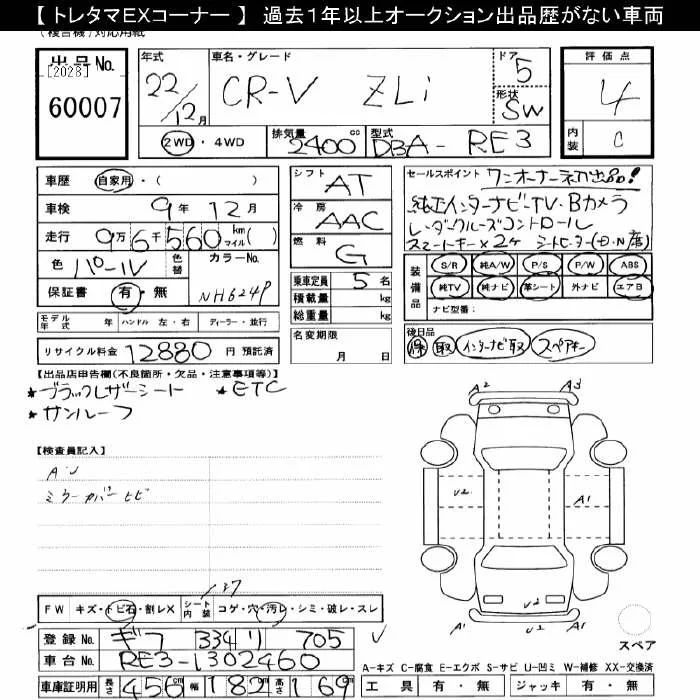 【 トレタマEXコーナー 】 過去１年以上オークション出品歴がない車両
(複合機)対応用紙
出品No. [2028] 60007
年式 22/12月
車名・グレード CR-V ZLi
ドア 5
形状 SW
評価点 4
内装 C
2WD・4WD 排気量 2400 cc 型式 DBA- RE3
車歴 自家用・( )
車検 9年 12月
走行 9万6千560 km マイル( )
色 パール 色替 カラーNo. NH624P
保証書 有・無
モデル年式 年 ハンドル 左・右 ディーラー・並行
リサイクル料金 12880 円 預託済
シフト AT
冷房 AAC
燃料 G
乗車定員 5 名
積載量 kg
総重量 kg
名変期限 月 日
セールスポイント ワンオーナー 出品!
純正インターナビ-TV・Bカメラ
レーダークルーズコントロール
スマートキー×2ケ シートヒーター
装備品 S/R 純A/W P/S P/W ABS
純TV 純ナビ 革シート 外ナビ エアB
ナビ型番：
後日品
保 取 インターナビ取 スペアキー
【出品店申告欄(不良箇所・欠品・注意事項等)】
★ブラックレザーシート ★ETC
★サンルーフ
【検査員記入】
A・U
ミラーカバーヒビ
A2 A3
U2 A1
U2
A1 A1
FW キズ・トビ石・割レX シート内装 コゲ・穴・汚レ・シミ・破レ・スレ
登録No. ギフ 334 リ 705
車台No. RE3-1302460
車庫証明用 長さ 456 cm 幅 182 cm 高さ 169 cm
スペア
A-キズ C-腐食 E-エクボ S-サビ U-凹ミ W-補修 XX-交換済
工具 有・無 ジャッキ 有・無